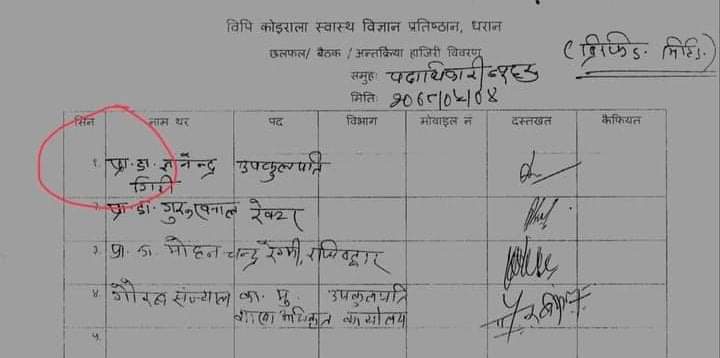 विपि कोइराला स्वास्थ विज्ञान प्रतिष्ठान, धरान
छलफल/ बैठक /अन्तक्रिया हाजिरी विवरण
(ब्रिफिङ. मिटिङ.)
समुह: पदाधिकारी
मिति:
सिन नाम थर पद विभाग मोवाइल नं दस्तखत कैफियत
१. प्रा. डा. ज्ञानेन्द्र गिरी उपकुलपति
२. प्रा. डा. गुरु खनाल रेक्टर
३. प्रा. डा. मोहन चन्द्र रेग्मी, रजिष्ट्रार
४. गौरब संज्याल का. मु. उपकुलपति
शाखा अधिकृत कार्यालय
५.